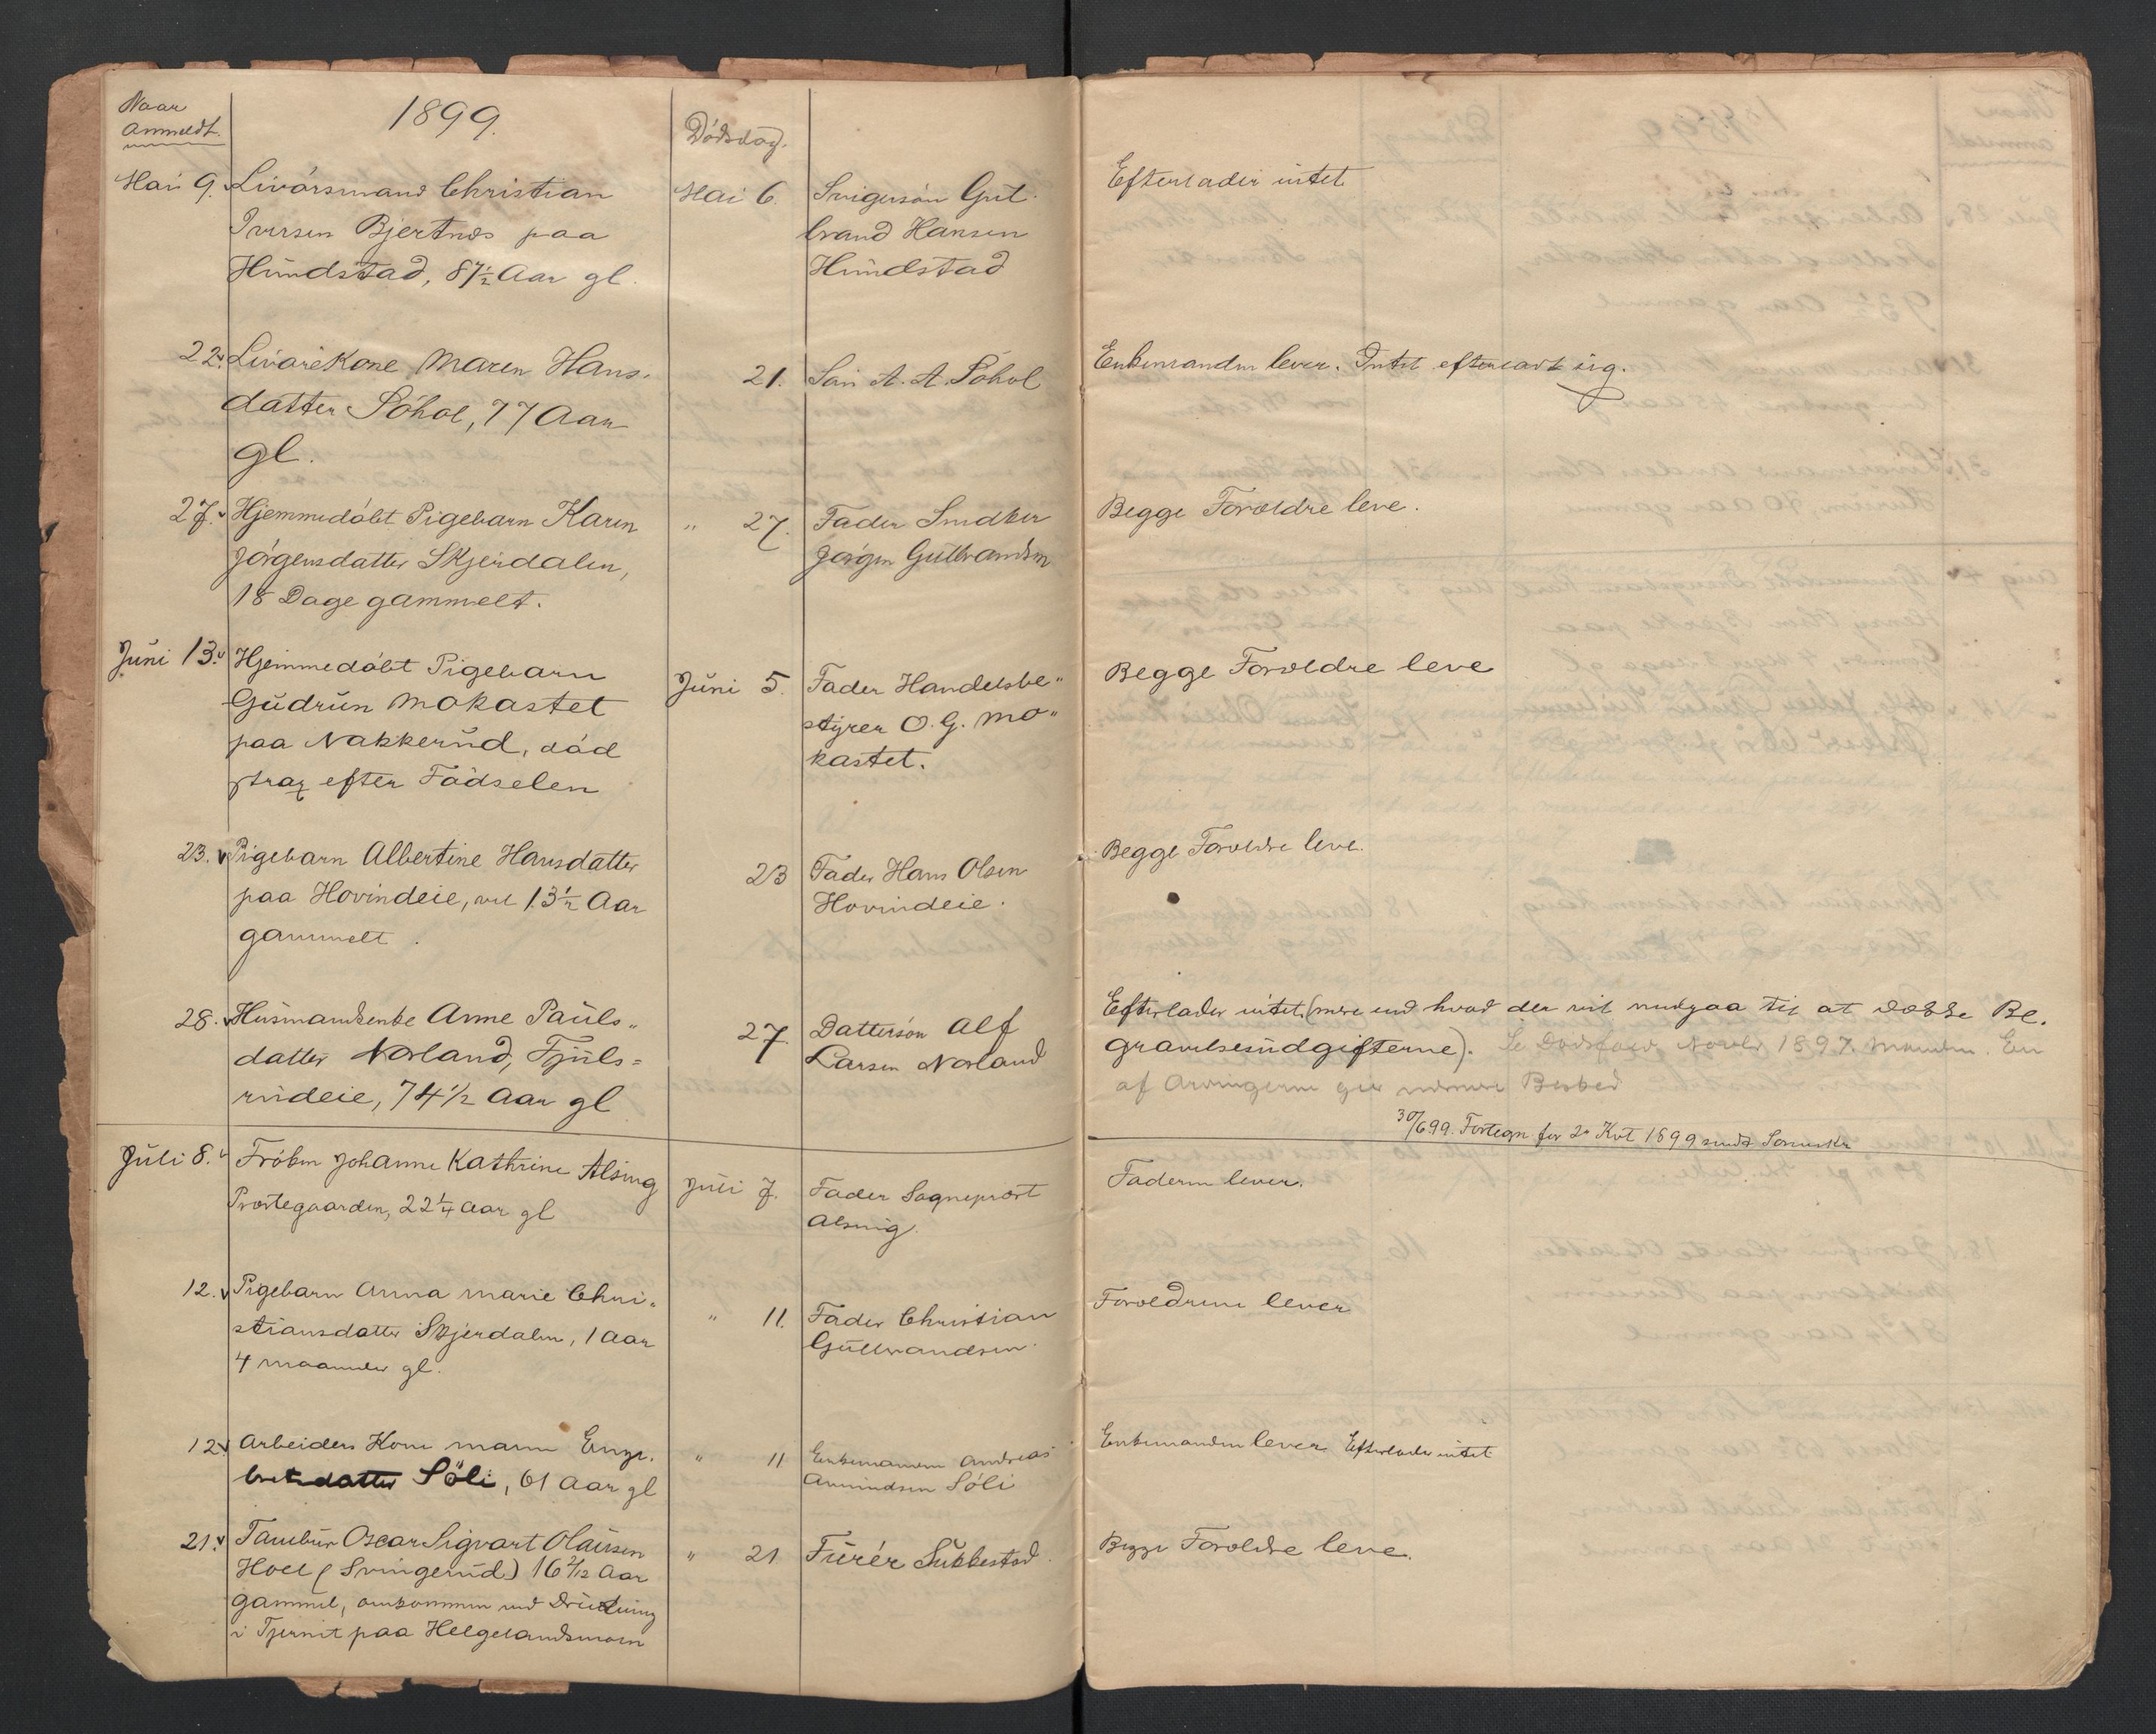 Naar
anmeldt.
1899.
Dödsdag.
Mai 9. Livörsmand Christian
Iversen Bjertnæs paa
Hundstad, 87½ Aar gl.
Mai 6.
Svigersön Gul-
brand Hansen
Hundstad
Efterlader intet
22. Livörskone Maren Hans-
datter Söhol, 77 Aar
gl.
21.
Sön A. A. Söhol
Enkemanden lever. Intet efterladt sig.
27. Hjemmedöbt Pigebarn Karen
Jörgensdatter Skjerdalen,
18 Dage gammelt.
" 27.
Fader Snedker
Jörgen Gulbrandsen
Begge Forældre leve.
Juni 13. Hjemmedöbt Pigebarn
Gudrun Mokastet
paa Nakkerud, död
strax efter Födselen
Juni 5.
Fader Handelsbe"
styrer O. G. Mo"
kastet.
Begge Forældre leve
23. Pigebarn Albertine Hansdatter
paa Hovindeie, vel 13½ Aar
gammelt.
23
Fader Hans Olsen
Hovindeie.
Begge Forældre leve.
28. Husmandsenke Anne Pauls"
datter Norland, Fjuls=
rudeie, 74½ Aar gl
27
Dattersön Alf
Larsen Norland
Efterlader intet (mere end hvad der vil medgaa til at dække Be-
gravelsesudgifterne). Se Dödsfald 1897. En
af Arvingerne giver nærmere Besked
30/6 99. Fortegn for 2 Kvt 1899 sendt Sorenskr
Juli 8. Fröken Johanne Kathrine Alsing
Præstegaarden, 22¼ Aar gl
Juli 7.
Fader Sogneprest
Alsing.
Faderen lever.
12. Pigebarn Anna Marie Chri"
stiansdatter Skjerdalen, 1 Aar
4 maaneder gl.
" 11.
Fader Christian
Gulbrandsen.
Forældrene lever
12. Arbeiders Kone Maren Enge-
bretsdatter Söli, 61 Aar gl
" 11
Enkemanden Andreas
Amundsen Söli
Enkemanden lever. Efterlader intet
21. Tambur Oscar Sigvart Olausen
Hoel (Svingerud) 16 2/12 Aar
gammel, omkommen ved Drukning
i Tjernet paa Helgelandsmoen
" 21
Furér Subbestad.
Begge Forældre leve.